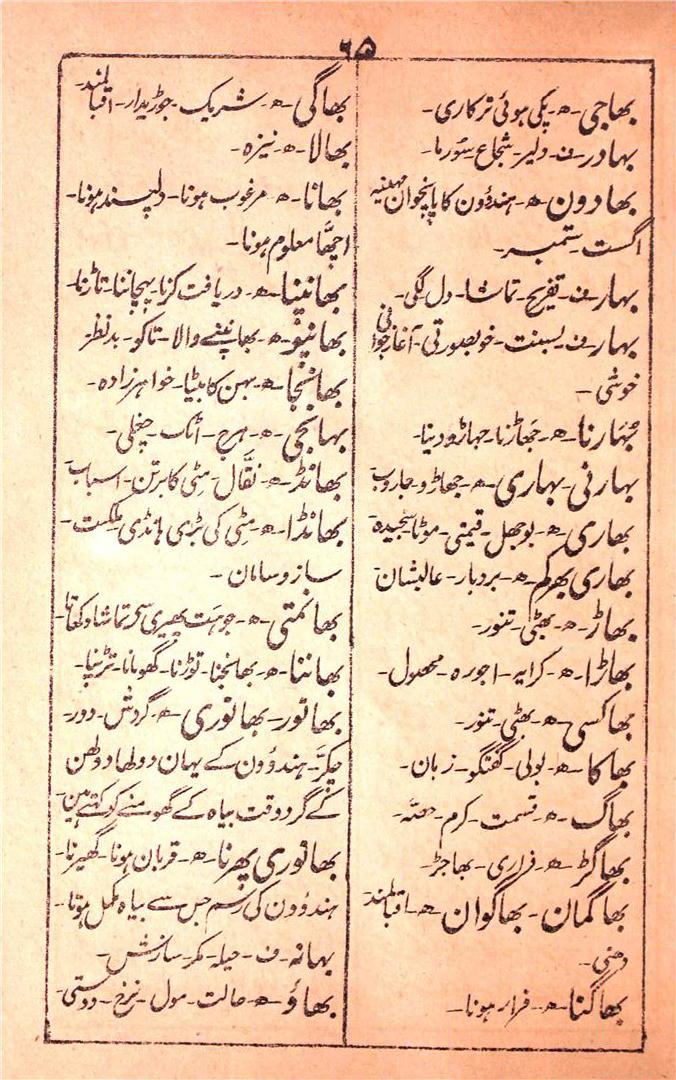 ۶۵
بھاجی۔ھ۔ پکی ہوئی ترکاری۔
بہادر۔ف۔ دلیر۔ شجاع۔ سورما۔
بھادون۔ھ۔ ہندوُون کا پانچوان مہینہ
اگست۔ ستمبر۔
بہار۔ف۔ تفریح۔ تماشا۔ دل لگی۔
بہار۔ف۔ بسنت۔ خوبصورتی۔ آغاز جوانی
خوشی۔
بہارنا۔ھ۔ جھاڑنا۔ جھاڑو دینا۔
بہارنی۔ بہاری۔ھ۔ جھاڑو۔ جاروب
بھاری۔ھ۔ بوجھل۔ قیمتی۔ موٹا۔ سنجیدہ
بھاری بھرکم۔ھ۔ بردبار۔ عالیشان
بھاڑ۔ھ۔ بھٹی۔ تنور۔
بھاڑا۔ھ۔ کرایہ۔ اجورہ۔ محصول۔
بھاکسی۔ھ۔ بھٹی۔ تنور۔
بھاکا۔ھ۔ بولی۔ گفتگو۔ زبان۔
بھاگ۔ھ۔ قسمت۔ کرم۔ حصّہ۔
بھاگڑ۔ھ۔ فراری۔ بھاجڑ۔
بھاگمان۔ بھاگوان۔ھ۔ اقبالمند
دھنی۔
بھاگنا۔ھ۔ فرار ہونا۔
بھاگی۔ھ۔ شریک۔ جوڑیدار۔ اقبالمند۔
بھالا۔ھ۔ نیزہ۔
بھانا۔ھ۔ مرغوب ہونا۔ دلپسند ہونا۔
اچھّا معلوم ہونا۔
بھانپنا۔ھ۔ دریافت کرنا۔ پہچاننا۔ تاڑنا۔
بھانپو۔ھ۔ بھانپنے والا۔ تاکو۔ بدنظر
بھانجا۔ھ۔ بہن کا بیٹا۔ خواہرزادہ۔
بھانجی۔ھ۔ ہرج۔ اٹک۔ چغلی۔
بھانڈ۔ھ۔ نقّال۔ مٹی کا برتن۔ اسباب
بھانڈا۔ھ۔ مٹی کی بڑی ہانڈی۔ ملکیت۔
ساز و سامان۔
بھانمتی۔ھ۔ جو ہت پھیری سے تماشا دکھاتا
بھاننا۔ھ۔ بھانجنا۔ توڑنا۔ گھومانا۔
بھانور۔ بھانوری۔ھ۔ گردش۔ دور۔
چکر۔ ہندوُون کے یہان دولھا دولھن
کے گرد وقت بیاہ کے گھومنے کو کہتے ہین۔
بھانوری پھرنا۔ھ۔ قربان ہونا۔ گھیرنا۔
ہندوُون کی رسم جس سے بیاہ مکمل ہوتا۔
بہانہ۔ف۔ حیلہ۔ مکر۔ سازش۔
بھاؤ۔ھ۔ حالت۔ مول۔ نرخ۔ دوستی۔